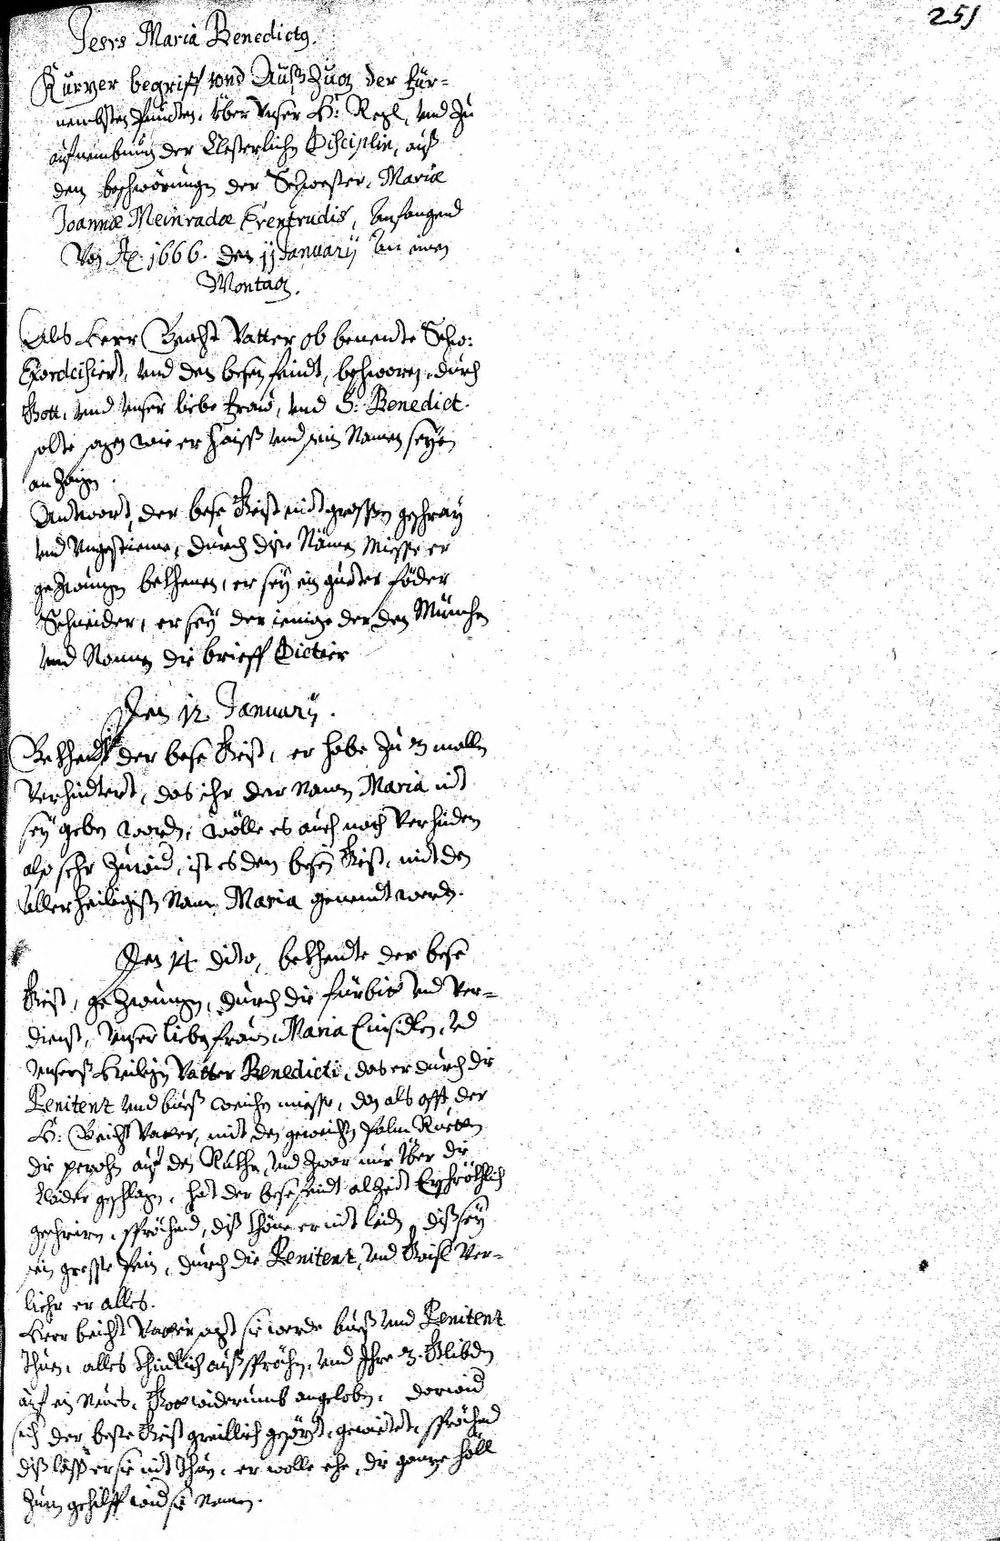 251
Jesvs Maria Benedictq.
Kurzer begriff vnd Außzug der für-
nembsten Puncten. über vnser H: Regl, vnd zu
aufnembung der Closterlichn Disciplin, auß
den beschwörungen der Schwester. Mariæ
Joannæ Meinradæ Erentrudis, Anfangend
Von Aō. 1666. den 11 January An einem
Montag.
Als Herr Beicht Vatter ob benente Schw:
Exordcisiert, vnd den besen feindt, beschworen, durch
Gott, vnd vnser liebe fraw, vnd S: Benedict.
solte sagen wie er haiss vnd sein Namen seyen
an zaigen.
Antwort, der bese Geist mit grossem geschray
vnd Vngestieme, durch dise Nämen miesse er
gezwungen bekhenen, er sey ein guoter föder
Schneider, er sey der ienige der den München
vnd Nonnen die brieff Dictier
Den 12 January.
Bekhendt der bese Geist, er habe zu 3 mallen
Verhindert, das ihr der namen Maria nit
sey geben worden, wölle es auch noch Verhinden
also sehr zuwid, ist es dem besen Geist, mit dem
allerheiligisten Namen Maria genendt werden.
Den 14 dito, bekhendte der bese
Geist, gezwungen, durch die fürbit vnd Ver-
dienst, vnser lieben frawen, Maria Einsidlen, vnd
vnserß Heiligen Vatter Benedicti, das er durch die
Penitenz vnd buess weichen miesse, den als offt der
H: Beicht Vatter, mit den geweichten Palm Ruetten
die persohn auf den Rukhen, vnd zwar nur über die
klaider geschlagen, hat der bese feindt alzeit Erschröklich
geschrien, sprechend, diß khöne er nit leiden, diß sey
sein groste Pein, durch die Penitenz, vnd Geisl Ver-
liehr er alles.
Herr beicht Vatter sagt sie werde buess vnd Penitenz
thuen, alles khindlich außsprächen, vnd Ihre 3. Glibden
auf ein Neues, Gott widerumb angeloben, darwid
sich der bese Geist greillich gesörzt, gewietet, sprächend
diß lasse er sie nit thun, er wolle ehe, die ganze höll
zum gehilff wid sie Namen.